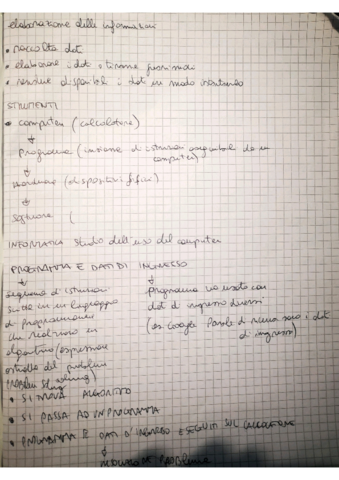 elaborazione delle informazioni
• raccolta dati
• elaborare i dati
• rendere disponibili i dati in modo
STRUMENTI
• computer (calcolatore)
programma (insieme di istruzioni eseguibili da un
computer)
hardware (dispositivi fisici)
software (
INFORMATICA studio dell'uso del computer
PROGRAMMA E DATI DI INGRESSO
sequenza di istruzioni
programma va usato con
scritte in un linguaggio
dati di ingresso diversi
di programmazione
(es Google Parole di ricerca sono i dati
che realizzano un
di ingresso)
algoritmo (espressione
astratta del problem
• SI TROVA ALGORITMO
• SI PASSA AD UN PROGRAMMA
• PROGRAMMA E DATI D'INGRESSO ESEGUITI SUL CALCOLATORE
PROBLEMA